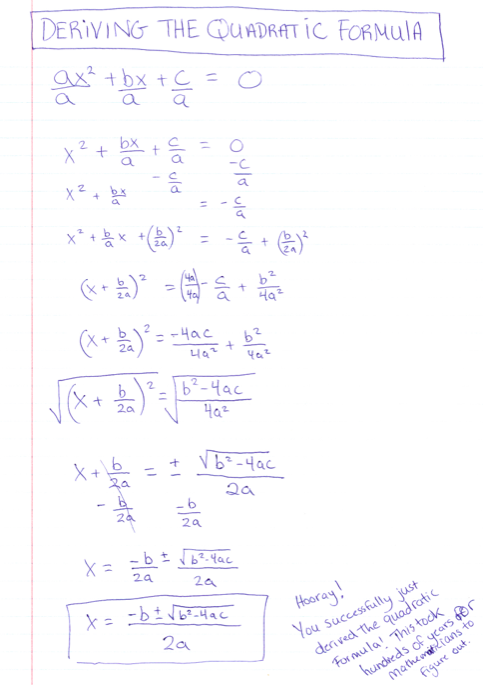 DERIVING THE QUADRATIC FORMULA
ax²/a + bx/a + c/a = 0
x² + bx/a + c/a = 0
- c/a   -c/a
x² + bx/a = -c/a
x² + b/a x + (b/2a)² = -c/a + (b/2a)²
(x + b/2a)² = (4a/4a) - c/a + b²/4a²
(x + b/2a)² = -4ac/4a² + b²/4a²
√(x + b/2a)² = √b²-4ac/4a²
x + b/2a = ± √b²-4ac/2a
- b/2a   -b/2a
x = -b/2a ± √b²-4ac/2a
x = -b ± √b²-4ac/2a
Hooray!
You successfully just
derived the quadratic
Formula! This took
hundreds of years for
mathematicians to
figure out.